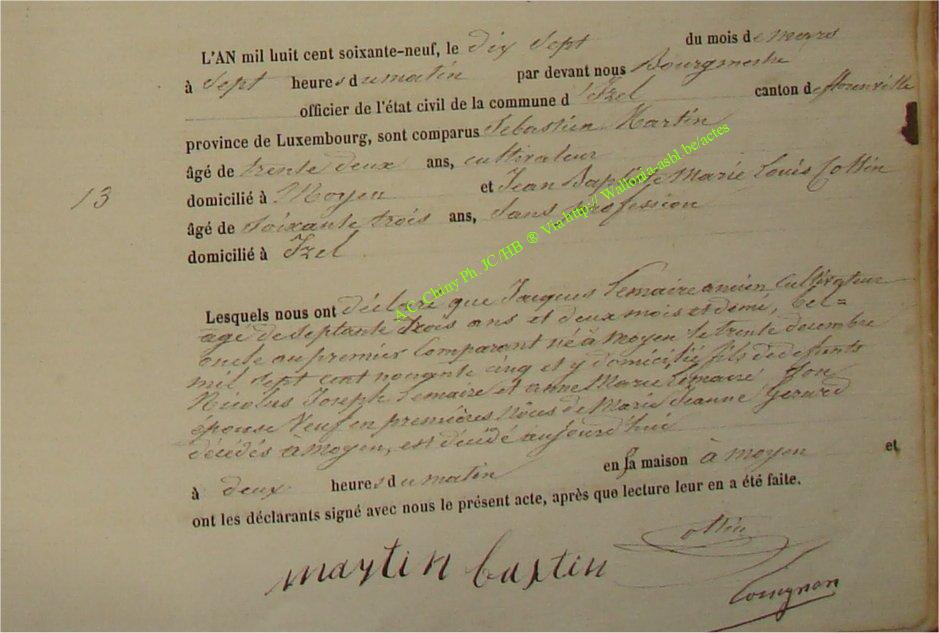 L'AN mil huit cent soixante-neuf, le dix Sept du mois de mars
à Sept heures du matin par devant nous Bourgmestre
officier de l'état civil de la commune d'Izel canton de florenville
province de Luxembourg, sont comparus Sebastien Martin
âgé de trente deux ans, cultivateur
domicilié à Moyen et Jean Baptiste Marie Louis Cottin
âgé de Soixante trois ans, Sans profession
domicilié à Izel
13
A.C. Chiny Ph. JC/HB ® Via http:// Wallonia-asbl be/actes
Lesquels nous ont déclaré que Jacques Lemaire ancien cultivateur
agé de Septante trois ans et deux mois et demi, bel=
oncle au premier Comparant né à moyen le trente decembre
mil Sept Cent nonante cinq et y domicilié fils de defunts
Nicolas Joseph Lemaire et anne Marie Lemaire
épouse Veuf en premières Nôces de Marie Jeanne Gerard
décédés à moyen, est décédé aujourd'hui
à deux heures du matin en sa maison à moyen et
ont les déclarants signé avec nous le présent acte, après que lecture leur en a été faite.
martin bastin
ottin